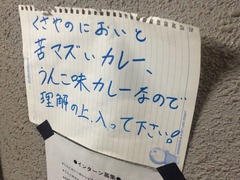 くさやのにおいと
苦マズいカレー、
うんこ味カレーなので
理解の上、入って下さい!
●インターン募集●